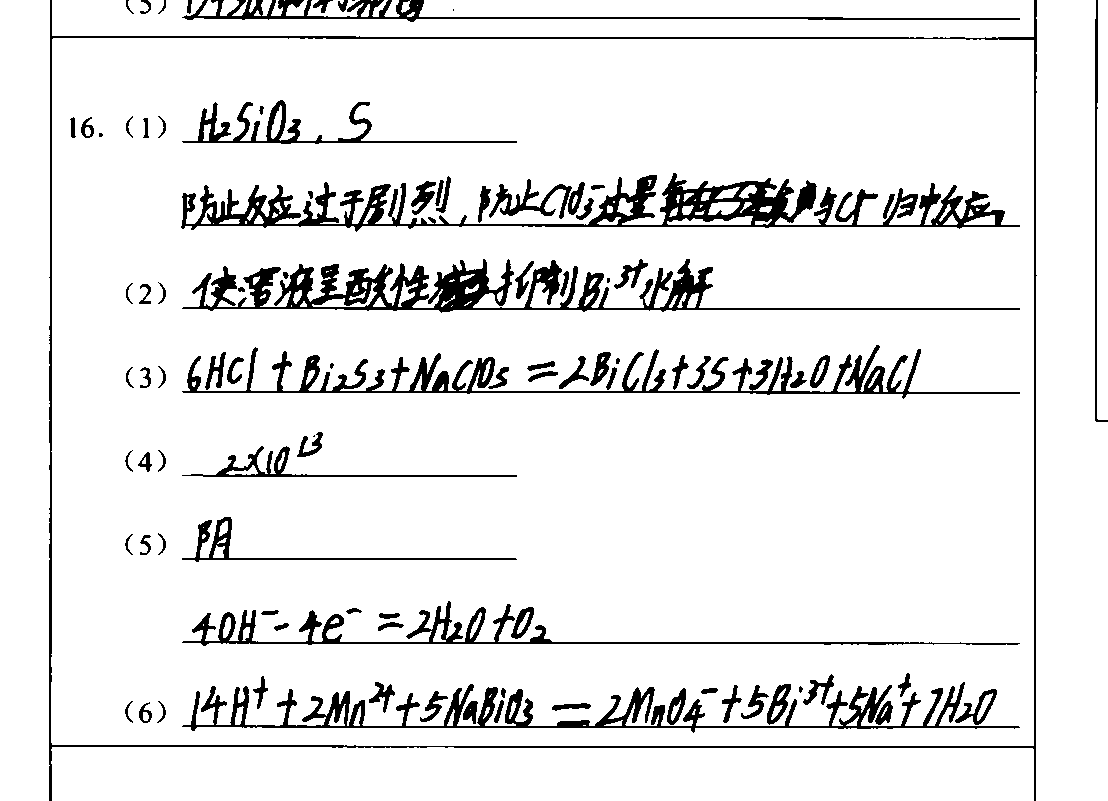 (5)
16. (1) H₂SiO₃, S
防止反应过于剧烈,防止ClO₃⁻过量 与Cl⁻归中反应。
(2) 使溶液呈酸性 抑制Bi³⁺水解
(3) 6HCl+Bi₂S₃+NaClO₃=2BiCl₃+3S+3H₂O+NaCl
(4) 2×10¹³
(5) 阴
4OH⁻-4e⁻=2H₂O+O₂
(6) 14H⁺+2Mn²⁺+5NaBiO₃=2MnO₄⁻+5Bi³⁺+5Na⁺+7H₂O